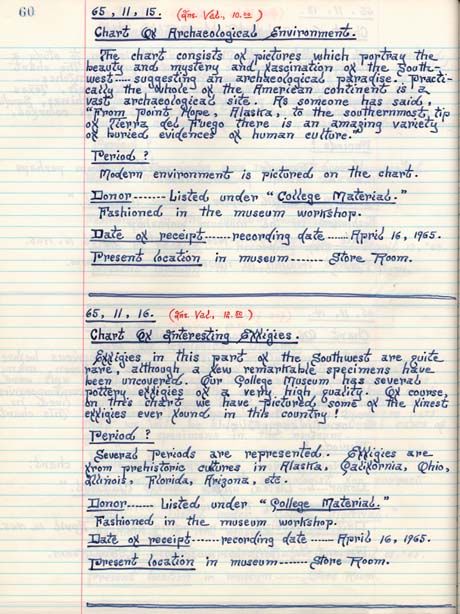 60
65, 11, 15. (Ins. Val., 10.00)
Chart Of Archaeological Environment.
The chart consists of pictures which portray the
beauty and mystery and fascination of the South-
west---- suggesting an archaeological paradise. Practi-
cally the whole of the American continent is a
vast archaeological site. As someone has said,
"From Point Hope, Alaska, to the southernmost tip
of Tierra del Fuego there is an amazing variety
of buried evidences of human culture."
Period?
Modern environment is pictured on the chart.
Donor------- Listed under "College Material."
Fashioned in the museum workshop.
Date of receipt------recording date------April 16, 1965.
Present location in museum------- Store Room.
65, 11, 16. (Ins. Val., 12.00)
Chart Of Interesting Effigies.
Effigies in this part of the Southwest are quite
rare, although a few remarkable specimens have
been uncovered. Our College Museum has several
pottery effigies of a very high quality. Of course,
on this chart we have pictured, some of the finest
effigies ever found in this country!
Period?
Several Periods are represented. Effigies are
from prehistoric cultures in Alaska, California, Ohio,
Illinois, Florida, Arizona, etc.
Donor------ Listed under "College Material."
Fashioned in the museum workshop.
Date of receipt------recording date------ April 16, 1965.
Present location in museum------- Store Room.